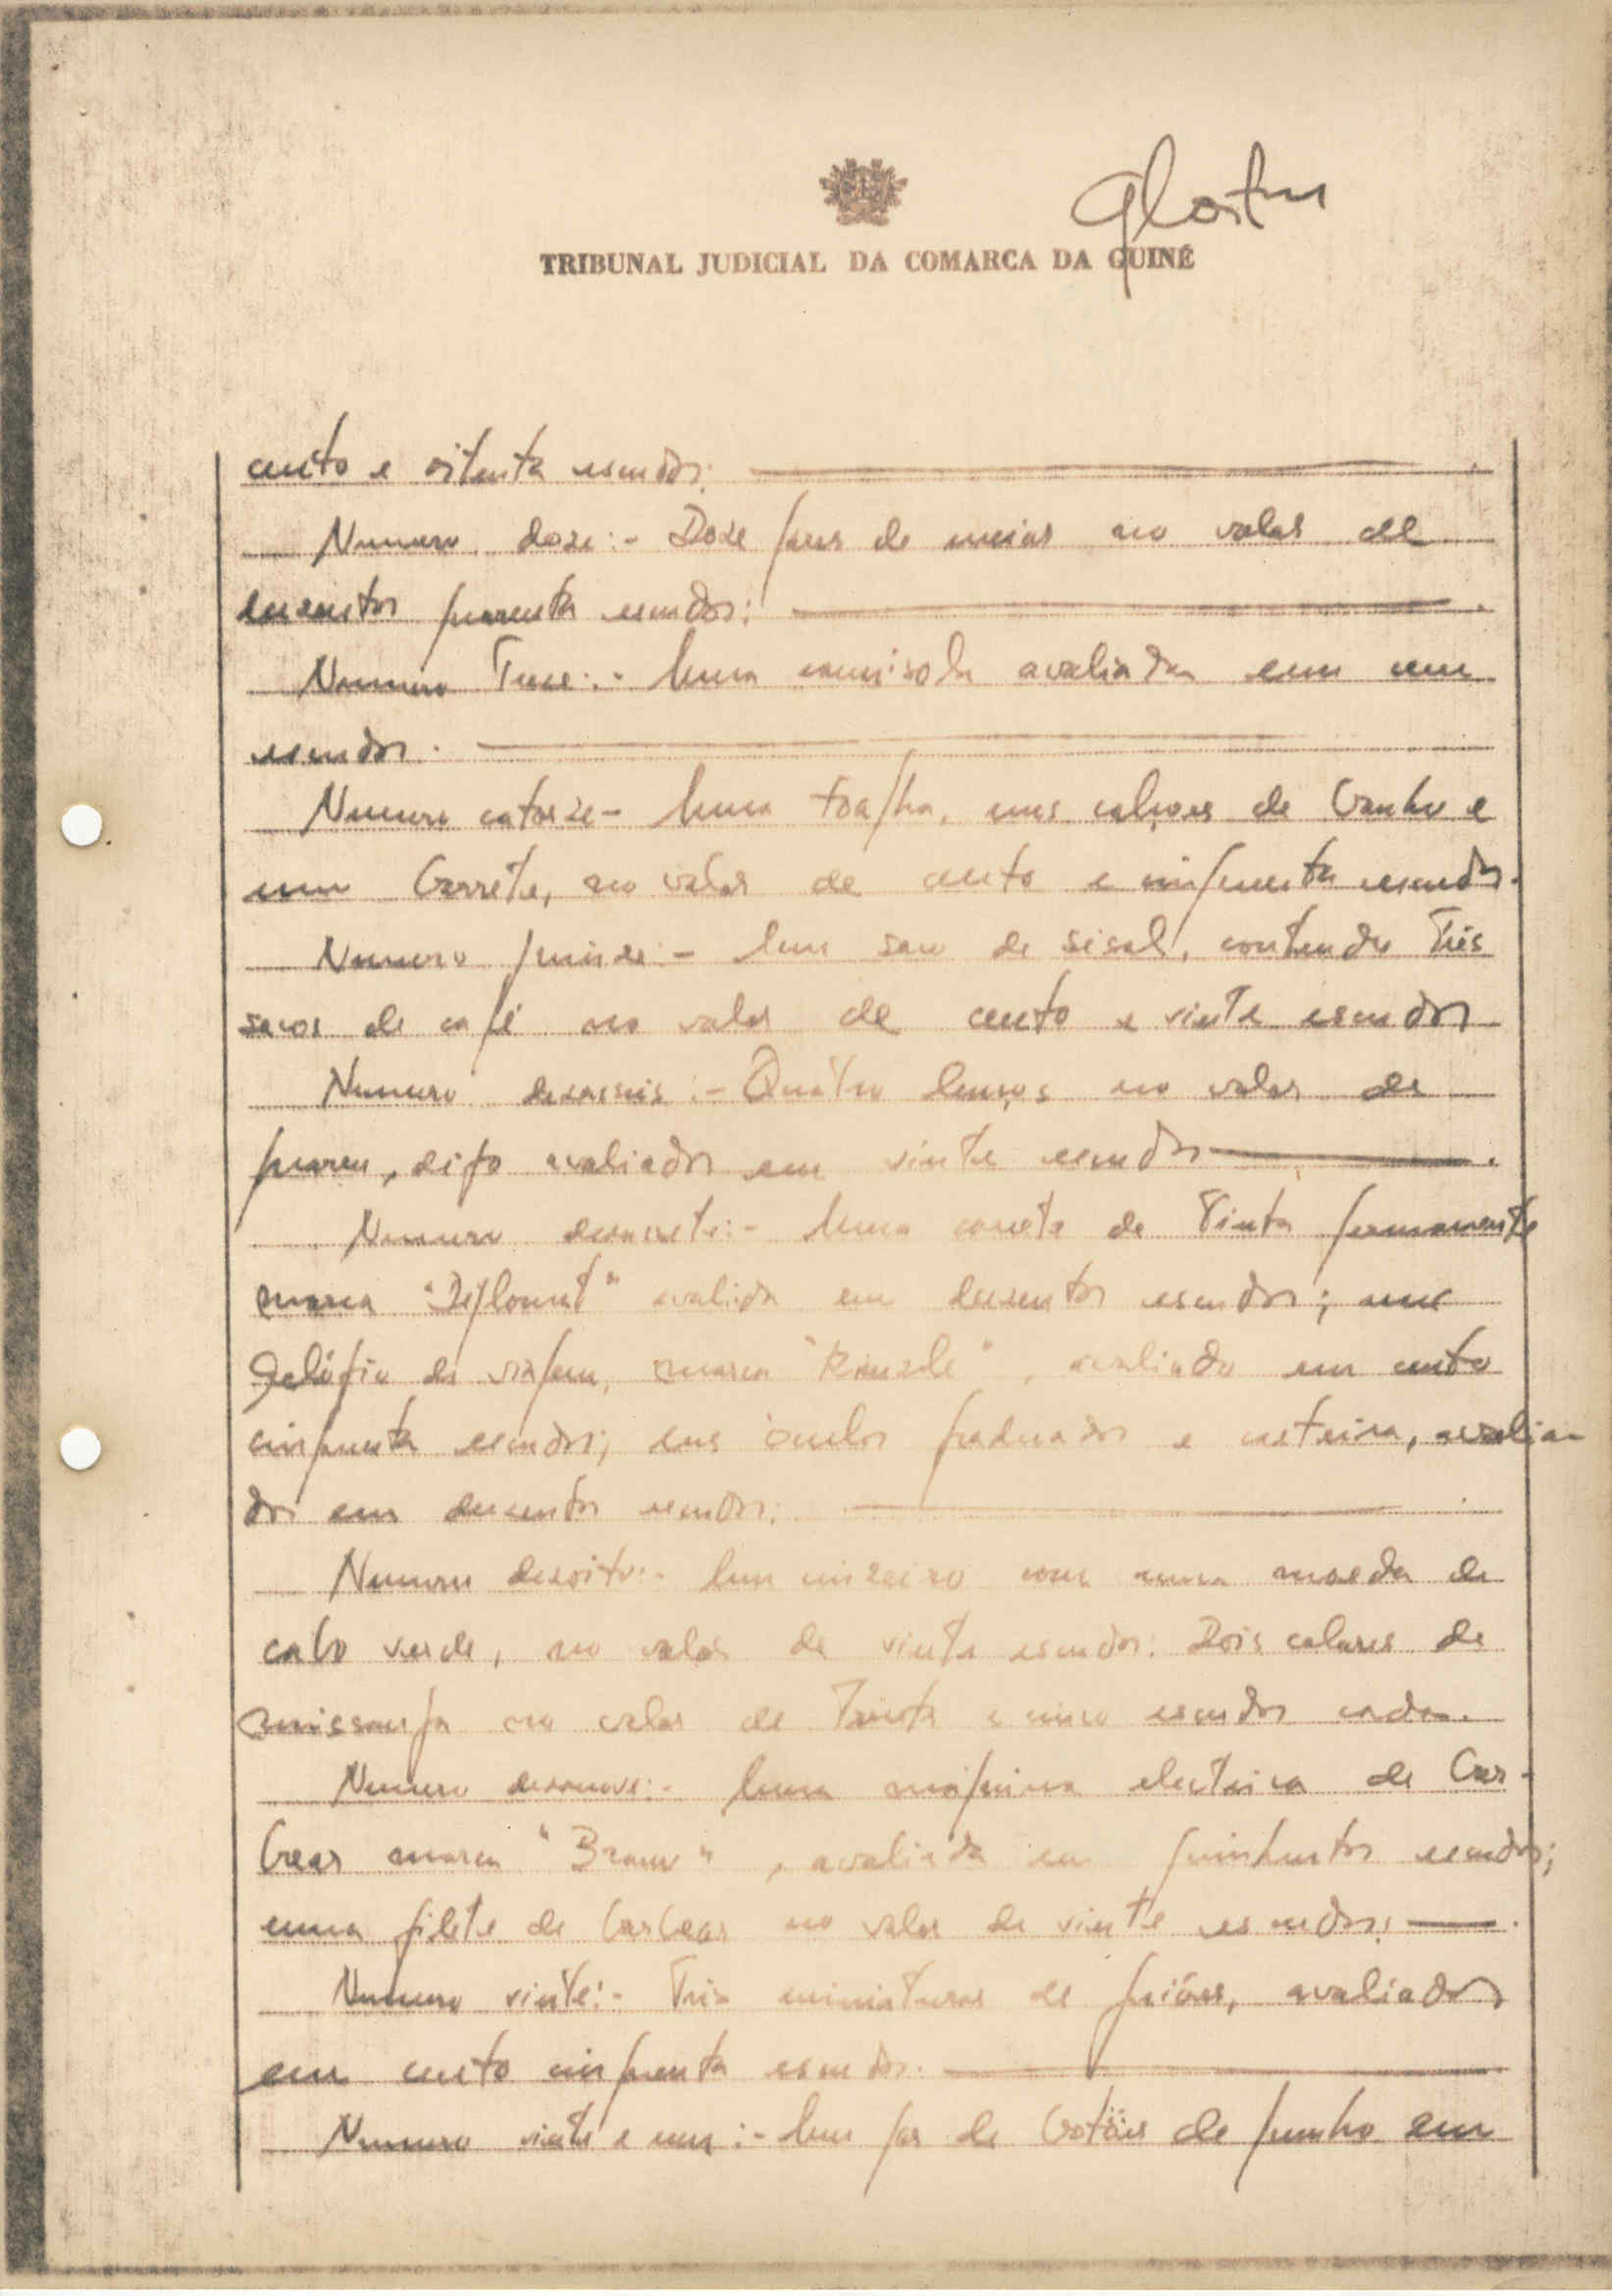 TRIBUNAL JUDICIAL DA COMARCA DA GUINÉ
cento e oitenta escudos;
Numero doze:- Doze pares de meias no valor de
duzentos quarenta escudos;
Numero Treze:- Uma camisola avaliada em cem
escudos.
Numero catorze- Uma toalha, uns calções de banho e
um barrete, no valor de cento e cinquenta escudos.
Numero quinze:- Um saco de sisal, contendo Três
sacos de café no valor de cento e vinte escudos
Numero dezasseis:- Quatro lenços no valor de
quaren, digo avaliados em vinte escudos
Numero dezassete:- Uma caneta de Tinta permanente
marca "Diplomat" avalida em duzentos escudos; um
relógio de viagem, marca "Kienzle", avaliado em cento
cinquenta escudos; uns óculos graduados e carteira, avalia-
dos em duzentos escudos;
Numero dezoito:- Um cinzeiro com uma moeda de
cabo verde, no valor de vinte escudos. Dois colares de
missanga no valor de Trinta e cinco escudos cada.
Numero dezanove:- Uma máquina electrica de bar-
bear marca "Braun", avaliada em quinhentos escudos;
uma gilete de barbear no valor de vinte escudos;
Numero vinte:- Três miniaturas de guiões, avaliados
em cento cinquenta escudos.
Numero vinte e um:- Um par de botões de punho em